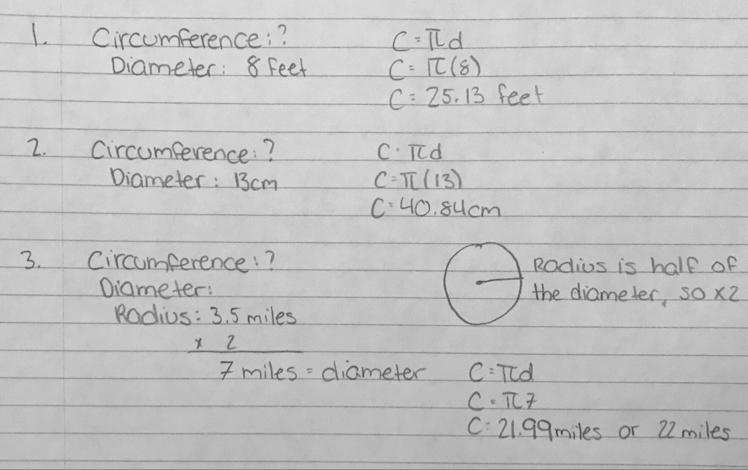 1. Circumference: ? C = πd
Diameter: 8 feet C = π(8)
C = 25.13 feet
2. Circumference: ? C = πd
Diameter: 13cm C = π(13)
C = 40.84cm
3. Circumference: ? Radius is half of
Diameter: the diameter, so x2
Radius: 3.5 miles
x 2
7 miles = diameter C = πd
C = π7
C = 21.99 miles or 22 miles